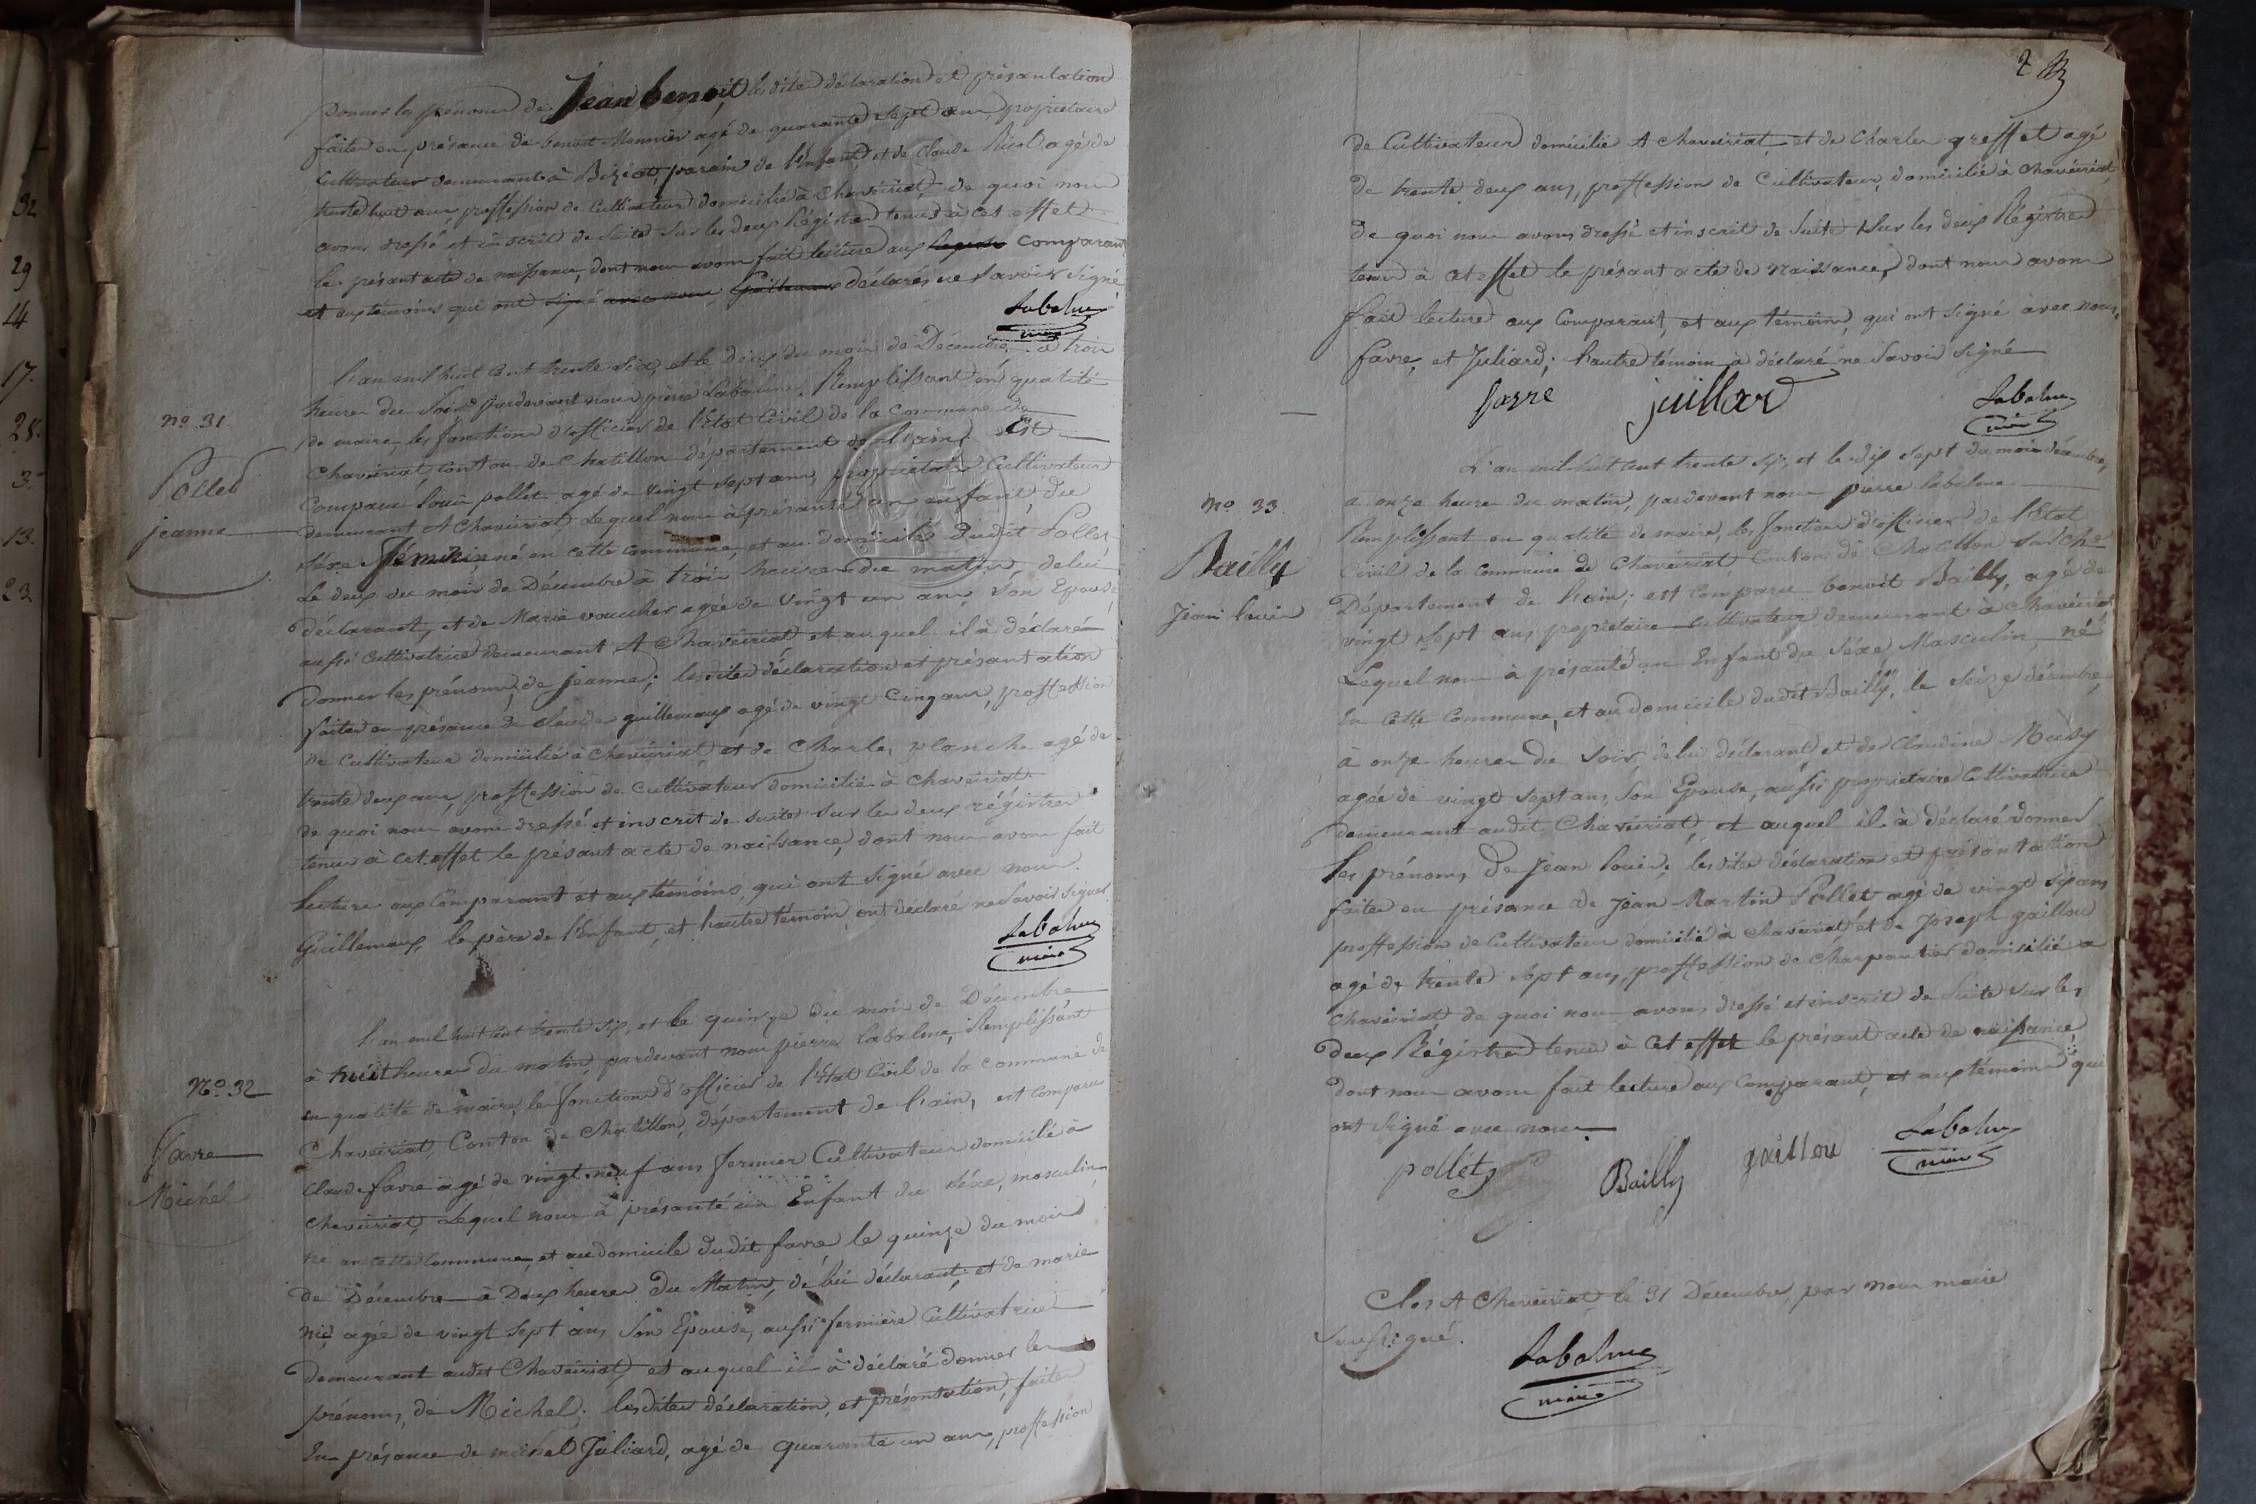 donner les prénoms de Jean benoit, lesdites déclaration et présantation
faites en présance de benoit Monnier agé de quarante sept ans, propriétaire
cultivateur demeurant à Biziat, parain de l'Enfant, et de Claude agé de
trente huit ans, proffession de Cultivateur domicilié à Chaveiriat, de quoi nous
avons dressé et inscrit de suite sur les deux Régistres tenus à cet effet
le présant acte de naissance, dont nous avons fait lecture aux comparant
et aux témoins qui ont déclarés ne Savoir Signé
Labalme
maire
L'an mil huit cent trente six, et le deux du mois de Décembre, à trois
heures du Soir, pardevant nous pierre Labalme, Remplissant en qualité
de maire, les fonctions d'officier de l'Etat Civil de la Commune de
Chaveiriat, Canton de Chatillon département de l'ain, Est
Comparu Louis pollet agé de vingt sept ans, propriétaire Cultivateur
demeurant A Chaveiriat, Lequel nous à présanté un enfant du
séxe féminin né en cette commune, et au domicile dudit Pollet
Le deux du mois de Décembre à trois heures du matin, de lui
déclarant, et de Marie vaucher agée de vingt un ans, Son Epouse
aussi Cultivatrice demeurant A Chaveiriat, et auquel il à déclaré
donner les prénoms, de jeanne; lesdites déclaration et présantation
faites en présance de claude guillemaux agé de vingt cinq ans, proffession
de Cultivateur domicilié à Chaveiriat, et de Charles planche agé de
trente deux ans, proffession de Cultivateur domicilié à Chaveiriat
de quoi nous avons dressé et inscrit de suite sur les deux régistres
tenus à cet effet le présant acte de naissance, dont nous avons fait
lecture aux Comparant et aux témoins, qui ont signé avec nous
Guillemaux, le père de l'Enfant, et l'autre témoin, ont déclaré ne Savoir Signer
Labalme
maire
n° 31
Pollet
jeanne
L'an mil huit cent trente six, et le quinze du mois de Décembre
à huit heures du matin, pardevant nous pierre labalme, Remplissant
en qualité de maire, les fonctions d'officier de l'Etat Civil de la commune de
Chaveiriat, Canton de Chatillon, département de l'ain, est comparu
Claude favre agé de vingt neuf ans fermier Cultivateur domicilié à
Chaveiriat, Lequel nous à présanté un Enfant du séxe, masculin
né en cette Commune, et au domicile dudit favre le quinze du mois
de Décembre à Deux heures du Matin, de lui déclarant, et de marie
agée de vingt sept ans, Son Epouse, aussi fermière Cultivatrice
demeurant audit Chaveiriat, et auquel il à déclaré donner les
prénoms, de Michel; lesdites déclaration, et présantation, faites
En présance de michel Juliard, agé de quarante un ans, proffession
N° 32
Favre
Michel
2
de Cultivateur domicilié A Chaveiriat, et de Charles greffet agé
de trente deux ans, proffession de Cultivateur, domicilié à Chaveiriat
de quoi nous avons dressé et inscrit de Suite Sur les deux Régistres
tenu à cet effet le présant acte de Naissance, dont nous avons
fait lecture aux Comparant, et aux témoins, qui ont Signé avec nous,
favre, et Juliard; l'autre témoin à déclaré ne Savoir Signé
favre juillard
Labalme
maire
L'an mil huit cent trente six, et le dix sept du mois décembre,
a onze heure du matin, pardevant nous pierre labalme
Remplissant en qualité de maire, les fonctions d'officier de l'Etat
Civil de la commune de Chaveiriat Canton de Chatillon
Département de l'ain; est Comparu benoit Bailly, agé de
vingt Sept ans propriétaire cultivateur demeurant à Chaveiriat
Lequel nous à présanté un Enfant du Séxe Masculin, né
En cette Commune, et au domicile dudit Bailly, le Seize décembre
à onze heures du Soir, de lui déclarant, et de Claudine
agée de vingt Sept ans, Son Epouse, aussi propriétaire Cultivatrice
demeurant audit Chaveiriat, et auquel il à déclaré donner
les prénoms, de Jean Louis; lesdites déclaration et présantation
faites en présance de Jean Martin Pollet agé de vingt six ans
proffession de Cultivateur domicilié à Chaveiriat et de Joseph gaillou
agé de trente Sept ans, proffession de Charpantier domicilié a
Chaveiriat de quoi nous avons dressé et inscrit de Suite Sur les
deux Régistres tenu à cet effet le présant acte de naissance
dont nous avons fait lecture aux Comparant, et aux témoins qui
ont Signé avec nous
pollet Bailly gaillou
Labalme
maire
N° 33
Bailly
Jean louis
Clos A Chaveiriat, le 31 Décembre, par nous maire
Soussigné.
Labalme
maire
32
29
14
17.
28.
3.
13.
23